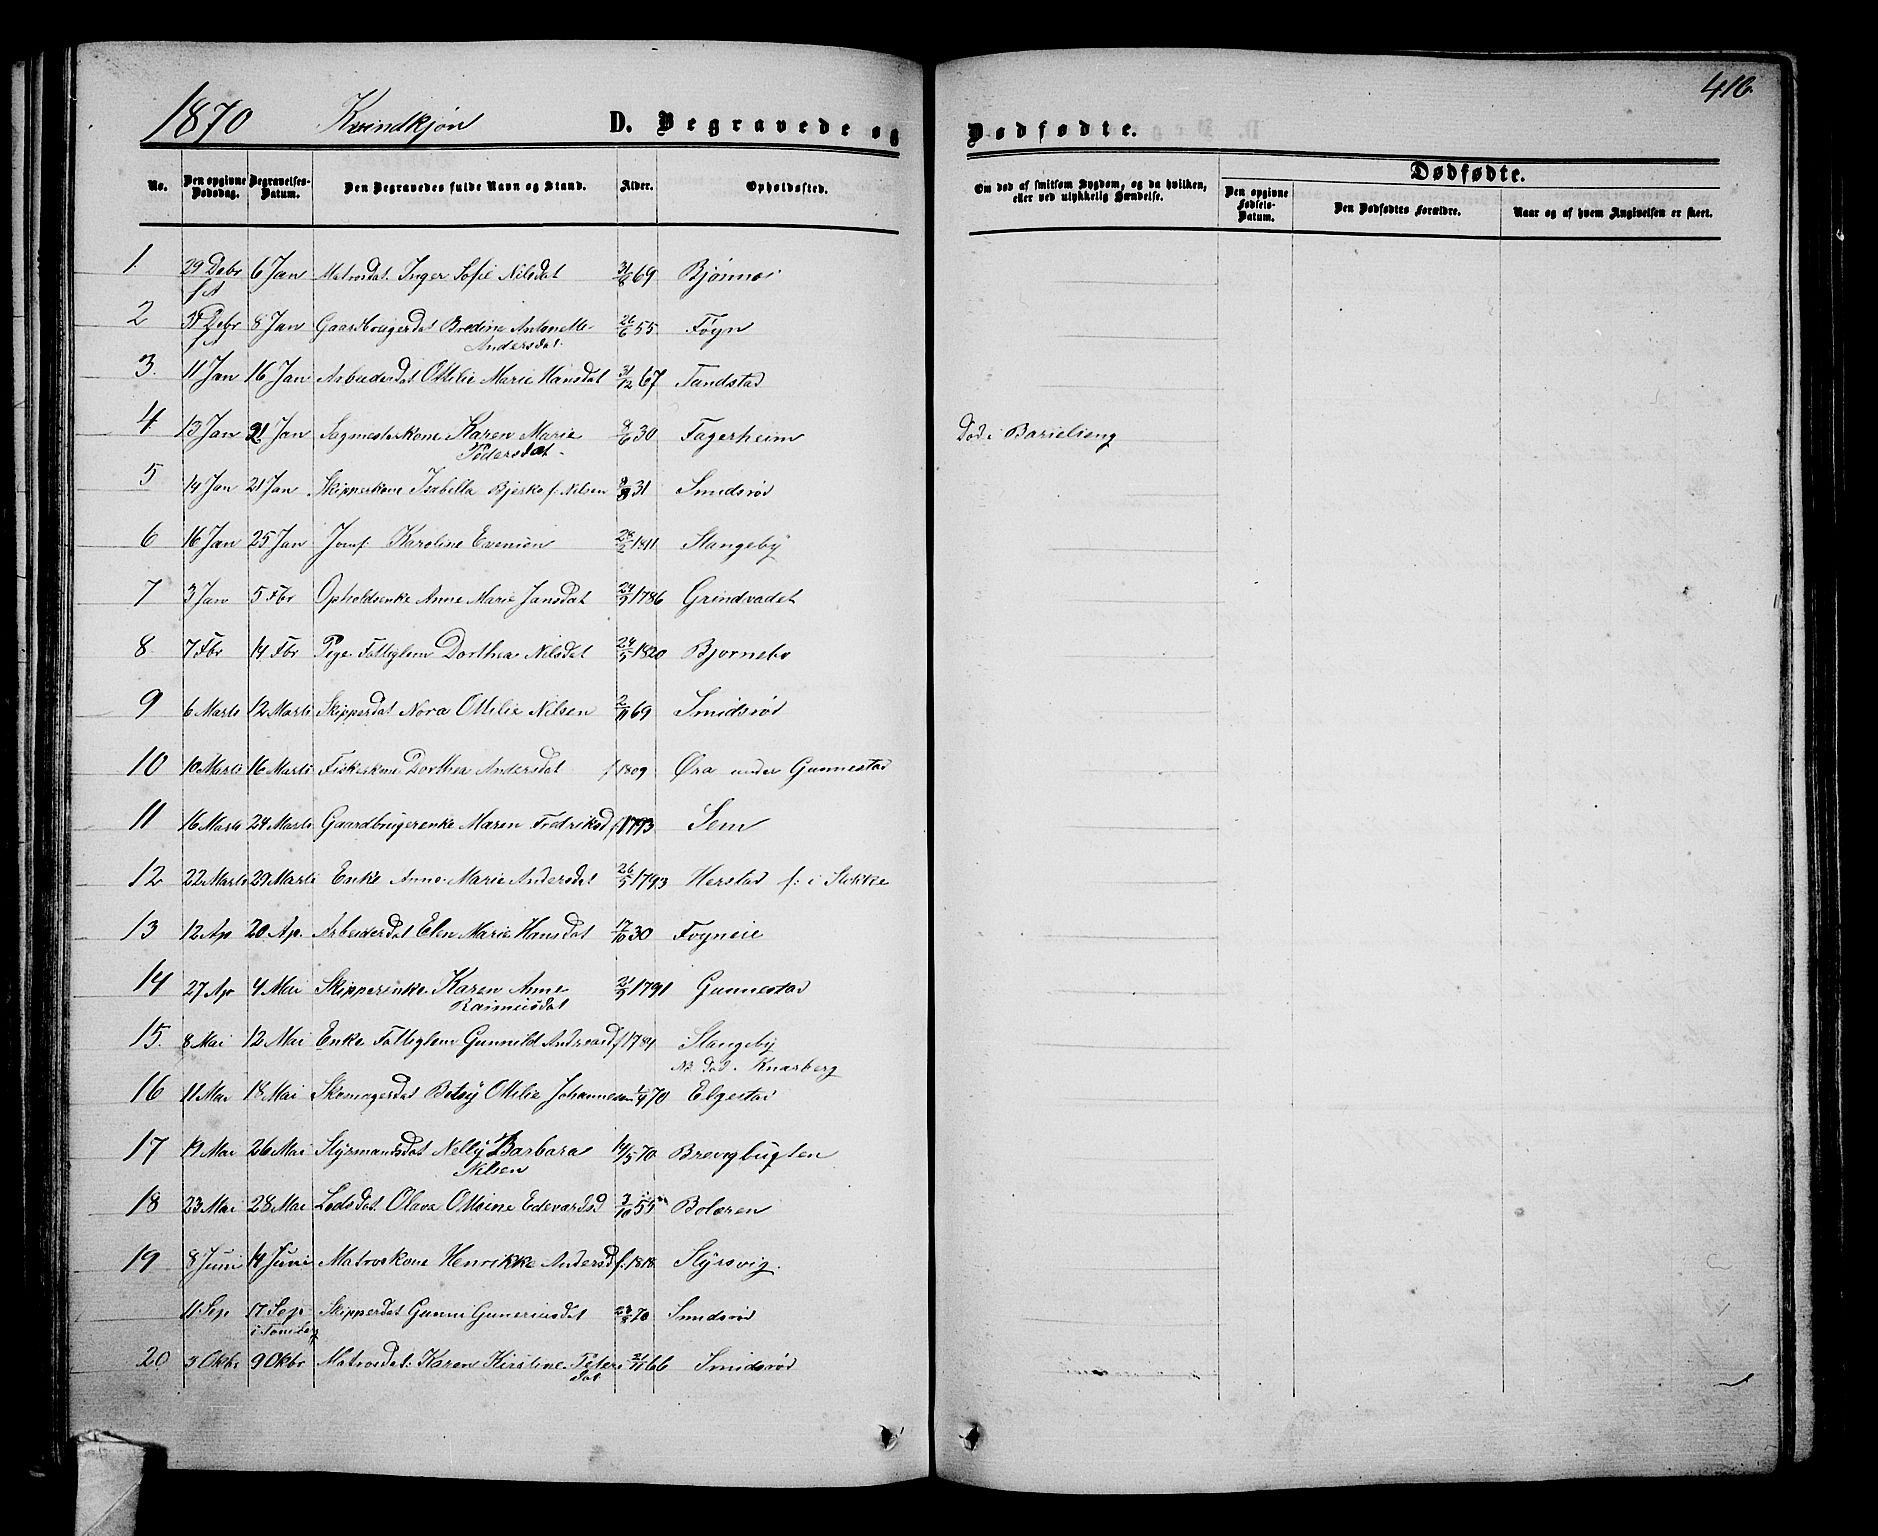 416
1870 Kvindkjøn D. Begravede og Dødfødte.
Dødfødte.
No. Den opgivne Dødsdag. Begravelses-Datum. Den Begravedes fulde Navn og Stand. Alder. Opholdssted. Om død af smitsom Sygdom, og da hvilken, eller ved ulykkelig Hændelse. Den opgivne Fødsels-Datum. Den Dødfødtes Forældre. Naar og af hvem Angivelsen er skeet.
1. 29 Debr 6 Jan Matrosdat. Inger Sofie Nilsdat 31/8 69 Bjønnes
f A
2 31 Debr 8 Jan Gaardbrugerdat Bredine Antonette 26/6 55 Føyn
Andersdat.
3. 11 Jan 16 Jan Arbeiderdat Ottilie Marie Hansdat 31/12 67 Tandstad
4. 13 Jan 21 Jan Sagmesterkone Karen Marie 9/6 30 Fagerheim Død i Barselseng
Pedersdat
5 14 Jan 21 Jan Skipperkone Isabella Bjerkø f. Nilsen 31 Smidsrød
6 16 Jan 25 Jan Jomf Karoline Evensen 28/2 1811 Stangeby
7 3 Jan 5 Fbr Opholdsenke Anne Marie Jansdat 24/9 1786 Grindvadet
8. 7 Fbr 14 Fbr Pige Fattiglem Dorthea Nilsdat 24/5 1820 Bjørnebo
9 6 Marts 12 Marts Skipperdat Nora Ottilie Nilsen 2/11 69 Smidsrød
10 10 Marts 16 Marts Fiskerkone Dorthea Andersdat f 1809 Øra under Gunnestad
11 16 Marts 24 Marts Gaardbrugerenke Maren Fredriksd f 1793 Sem
12 22 Marts 29 Marts Enke Anne Marie Andersdat 26/5 1793 Herstad f: i Stokke
13 12 Ap 20 Ap. Arbeiderdat Elen Marie Hansdat 17/10 30 Foyneie
14 27 Ap 4 Mai Skipperenke Karen Anne 21/9 1791 Gunnestad
Rasmusdat
15. 8 Mai 12 Mai Enke Fattiglem Gunnild Andreasd f 1784 Stangeby
Død i Knarberg
16 11 Mai 18 Mai Skomagerdat Betsy Ottilie Johannesen 1/4 70 Elgestad
17 19 Mai 26 Mai Styrmandsdat Nelly Barbara 14/5 70 Brevigbugten
Nilsen
18 23 Mai 28 Mai Lodsdat. Olava Ottoine Edevardsd 3/10 55 Bolæren
19 8 Juni 14 Juni Matroskone Henrikke Andersd f. 1818 Styrsvig.
11 Sep 17 Sep Skipperdat Gunni Guneriusdat 23/8 70 Smidsrød
i Tønsberg
20 5 Oktbr 9 Oktbr Matrosdat. Karen Kirstine Peters 66 Smidsrød
dat